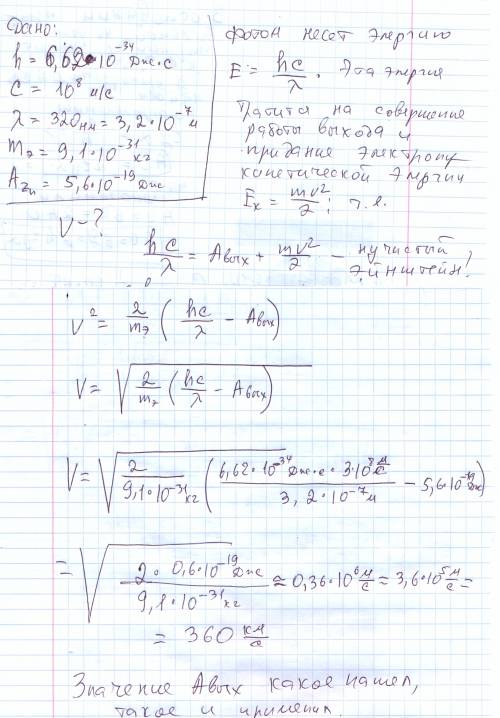 Дано:
h = 6,62•10⁻³⁴ Дж•с
c = 10⁸ м/с
λ = 320нм = 3,2•10⁻⁷ м
mэ = 9,1•10⁻³¹ кг
Azn = 5,6•10⁻¹⁹ Дж
V-?
Фотон несет энергию
E = hc/λ. Эта энергия
тратится на совершение
работы выхода и
придание электрону
кинетической энергии
Eк = mv²/2; т.е.
hc/λ = Aвых + mv²/2 - пучистый
Эйнштейн!
V² = 2/mэ (hc/λ - Aвых)
V = √(2/mэ (hc/λ - Aвых))
V = √(2/9,1•10⁻³¹кг (6,62•10⁻³⁴Дж•с•3•10⁸ м/с / 3,2•10⁻⁷м - 5,6•10⁻¹⁹Дж))
= √(2•0,6•10⁻¹⁹Дж / 9,1•10⁻³¹кг) ≈ 0,36•10⁶ м/с = 3,6•10⁵ м/с =
= 360 км/с
Значение Aвых какое нашел,
такое и применил.